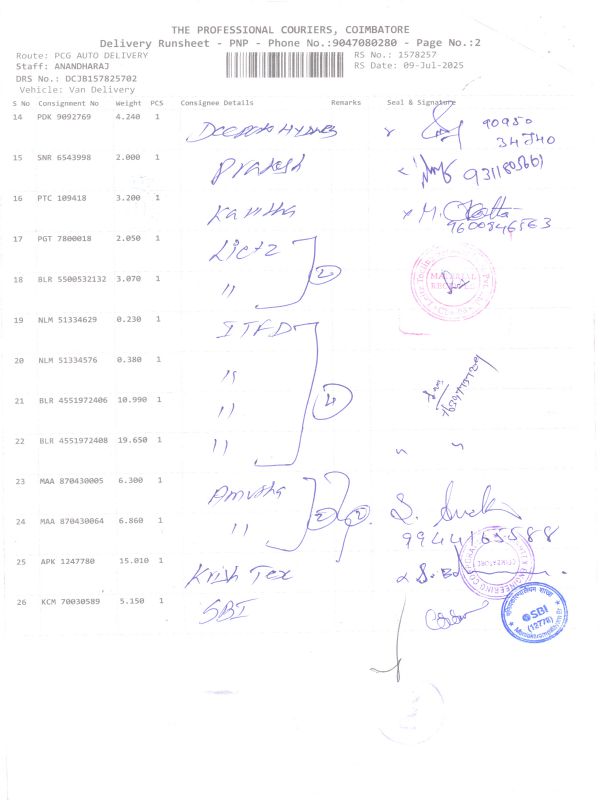 THE PROFESSIONAL COURIERS, COIMBATORE
Delivery Runsheet - PNP - Phone No.:9047080280 - Page No.:2
Route: PCG AUTO DELIVERY RS No.: 1578257
Staff: ANANDHARAJ RS Date: 09-Jul-2025
DRS No.: DCJB157825702
Vehicle: Van Delivery
S No Consignment No Weight PCS Consignee Details Remarks Seal & Signature
14 PDK 9092769 4.240 1 90950
34540
15 SNR 6543998 2.000 1 Prakash 9311805661
16 PTC 109418 3.200 1 Kavitha M.
9600346563
17 PGT 7800018 2.050 1 Lictz
18 BLR 5500532132 3.070 1 " 2
19 NLM 51334629 0.230 1 ITFD
20 NLM 51334576 0.380 1 "
21 BLR 4551972406 10.990 1 " 4
22 BLR 4551972408 19.650 1 " " "
23 MAA 870430005 6.300 1 Amutha S.
24 MAA 870430064 6.860 1 " 2 2 9944165588
25 APK 1247780 15.010 1 Krish Tex
26 KCM 70030589 5.150 1 SBI
SBI
(12778)